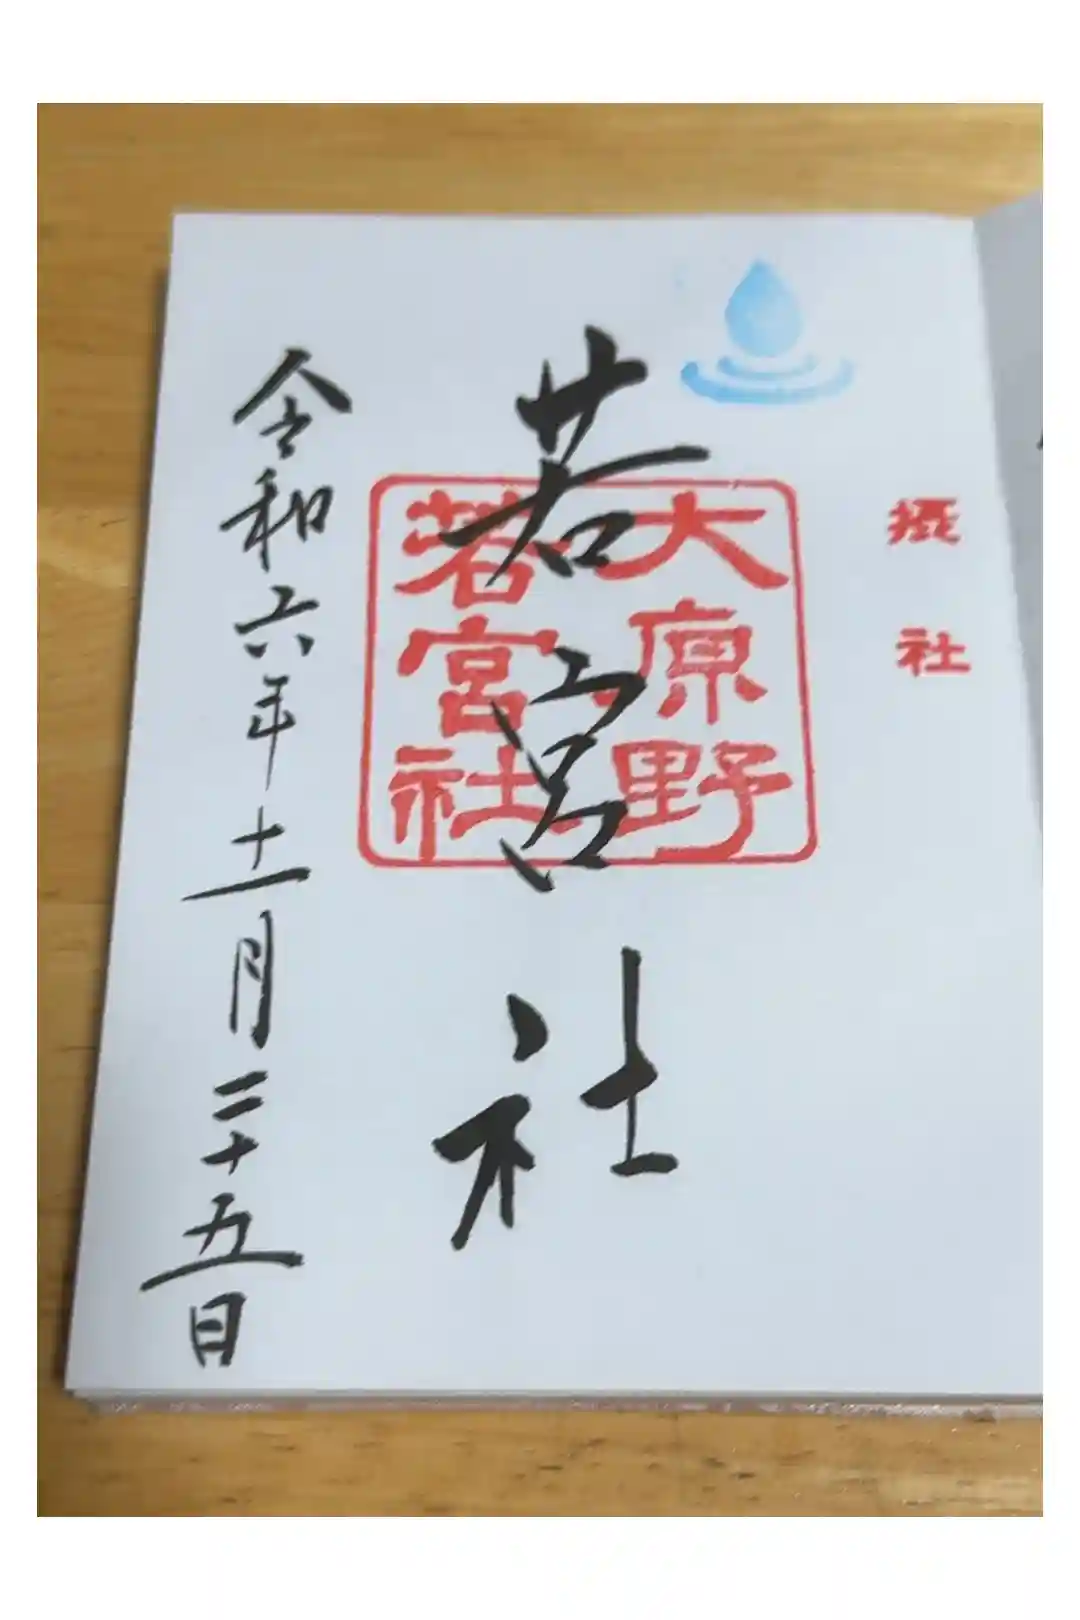 摂社
大原野
若宮社
若宮社
令和六年十一月二十五日